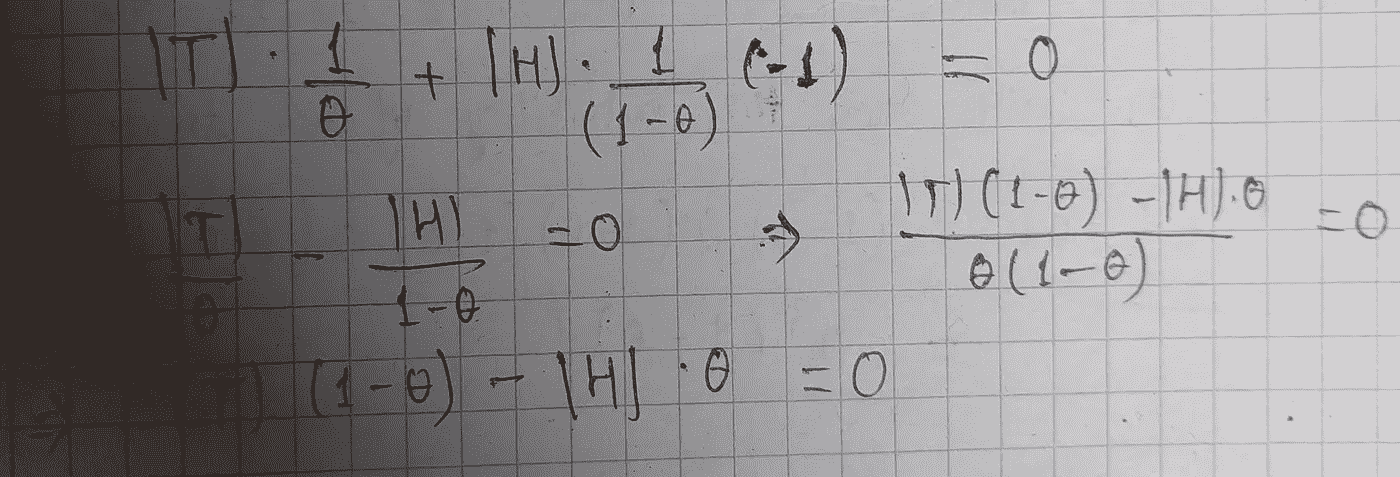 |T| · 1/θ + |H| · 1/(1-θ) (-1) = 0
|T|/θ - |H|/1-θ = 0 ⇒ |T|(1-θ) - |H|·θ / θ(1-θ) = 0
⇒ |T| (1-θ) - |H| · θ = 0